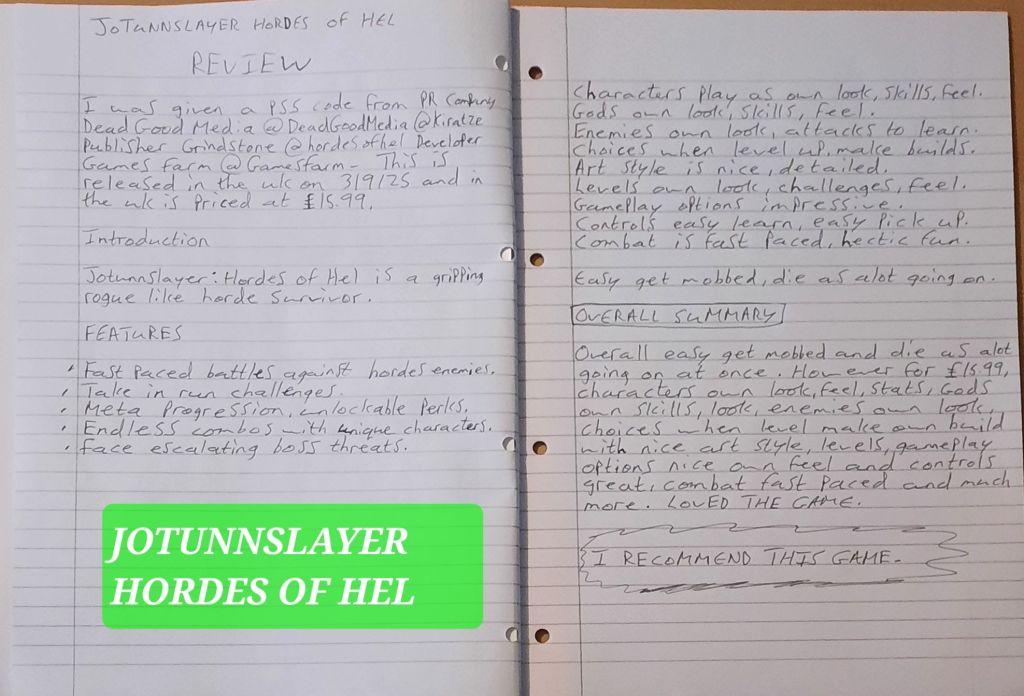 JOTUNNSLAYER HORDES OF HEL
REVIEW
I was given a PS5 code from PR Company
Dead Good Media @DeadGoodMedia @Kiratze
Publisher Grindstone @hordesofhel Developer
Games Farm @Gamesfarm- This is
released in the uk on 3/9/25 and in
the uk is priced at £15.99.
Introduction
Jotunnslayer: Hordes of Hel is a gripping
rogue like horde survivor.
FEATURES
• Fast paced battles against hordes enemies.
• Take in run challenges.
• Meta Progression, unlockable Perks.
• Endless combos with unique characters.
• Face escalating boss threats.
JOTUNNSLAYER
HORDES OF HEL
Characters play as own look, skills, feel.
Gods own look, skills, feel.
Enemies own look, attacks to learn.
Choices when level up, make builds.
Art style is nice, detailed.
Levels own look, challenges, feel.
Gameplay options impressive.
Controls easy learn, easy pick up.
Combat is fast paced, hectic fun.
Easy get mobbed, die as alot going on.
OVERALL SUMMARY
Overall easy get mobbed and die as alot
going on at once. However for £15.99,
characters own look, feel, stats, Gods
own skills, look, enemies own look,
choices when level make own build
with nice art style, levels, gameplay
options nice own feel and controls
great, combat fast paced and much
more. LOVED THE GAME.
I RECOMMEND THIS GAME.